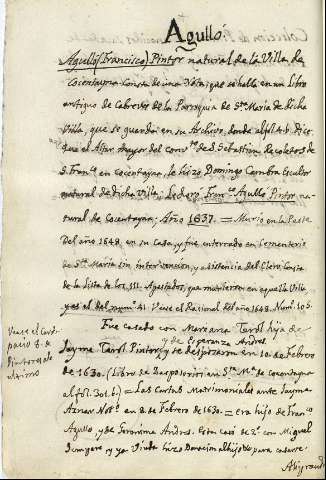 Agulló
Agulló (Francisco) Pintor natural de la Villa de
Cocentayna Consta de una Nota, que se halla en un Libro
antiguo de Cabreves de la Parroquia de Sta. Maria de dicha
Villa, que se guarda en su Archivo, donde al fol. 4. b. Dice,
que el Altar mayor del Convto. de S. Sebastian Recoletos de
S. Franco. en Cocentayna, le hizo Domingo Cambra Escultor
natural de dicha Villa. Le doró Franco. Agullo Pintor na-
tural de Cocentayna; Año 1637. = Murio en la Peste
Del año 1648. en su Casa, y fue enterrado en el Cementerio
de Sta. Maria sin intervencion, y asistencia del Clero. Consta
de la Lista de los 111. Apestados, que murieron en aquella Villa
y es el del num. 41. Vease el Racional del año 1648. Num. 105.
Fue casado con Mariana Tarol hija de
y de Esperanza Andres
Jayme Tarol Pintor, y se desposaron en 10. de Febrero
de 1630. (Libro de Desposorios en Sta. Ma. de Cocentayna
al fol. 301. b.) = Las Cartas Matrimoniales ante Jayme
Aznar Noto. en 2 de Febrero de 1630. = era hijo de Franco.
Agullo, y de Geronima Andres. Esta casó de 2o. con Miguel
y ya Viuda hizo Donacion al hijo para casarse.
Vease el Cart-
pacio 8. de
Pintores al